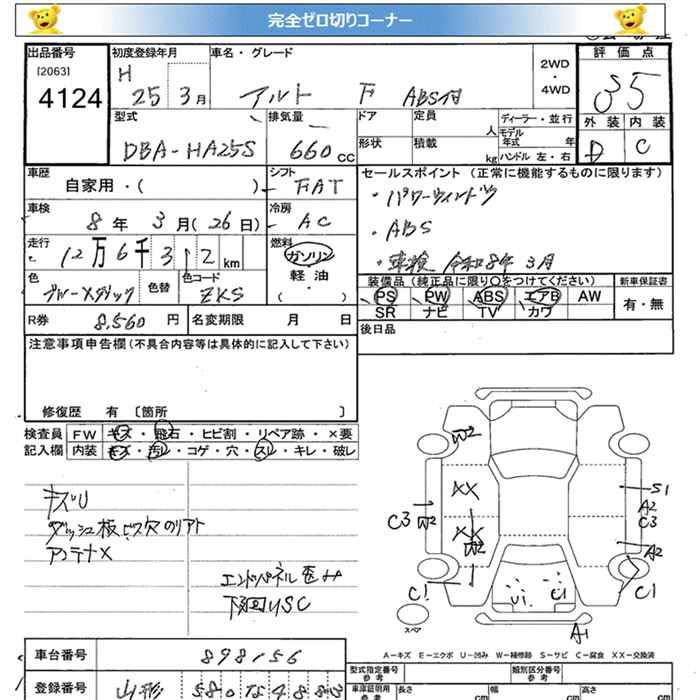 完全ゼロ切りコーナー
出品番号 初度登録年月 車名・グレード 評価点
[2063] H 2WD
4124 25 3月 アルト F ABS付 ・ 35
4WD
型式 排気量 ドア 定員 人 ディーラー・並行 外装 内装
モデル年式 年
DBA-HA25S 660cc 形状 積載 kg ハンドル 左・右 D C
車歴 シフト セールスポイント(正常に機能するものに限ります)
自家用・( ) FAT ・パワーウィンドウ
車検 冷房
8年3月(26日) AC ・ABS
走行 燃料
12万6千312km ガソリン ・車検 令和8年3月
軽油
・( )
色 色替 色コード 装備品(純正品に限り○をつけてください) 新車保証書
ブルーメタリック ZKS PS PW ABS エアB AW 有・無
SR ナビ TV カワ
R券 8,560円 名変期限 月 日 後日品
注意事項申告欄(不具合内容等は具体的に記入して下さい)
修復歴 有 〔箇所 〕
検査員 FW キズ・飛石・ヒビ割・リペア跡・×要
記入欄 内装 キズ・汚レ・コゲ・穴・スレ・キレ・破レ
キズU
ダッシュ板ビス穴のリアト
アンテナX
エンドパネル歪み
下回りSC
W2
XX S1
A2
C3 W2 C3
XX
W2 A2
C1 C1
U1 C1
スペア A1
A-キズ E-エクボ U-凹み W-補修跡 S-サビ C-腐食 XX-交換済
車台番号 898156 型式指定番号 参考 類別区分番号 参考
登録番号 山形 580 車庫証明用 参考 長さ cm 幅 cm 高さ cm